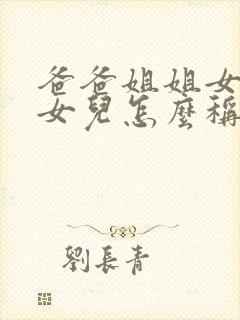 爸爸姐姐女
女兒怎麼稱
劉長青